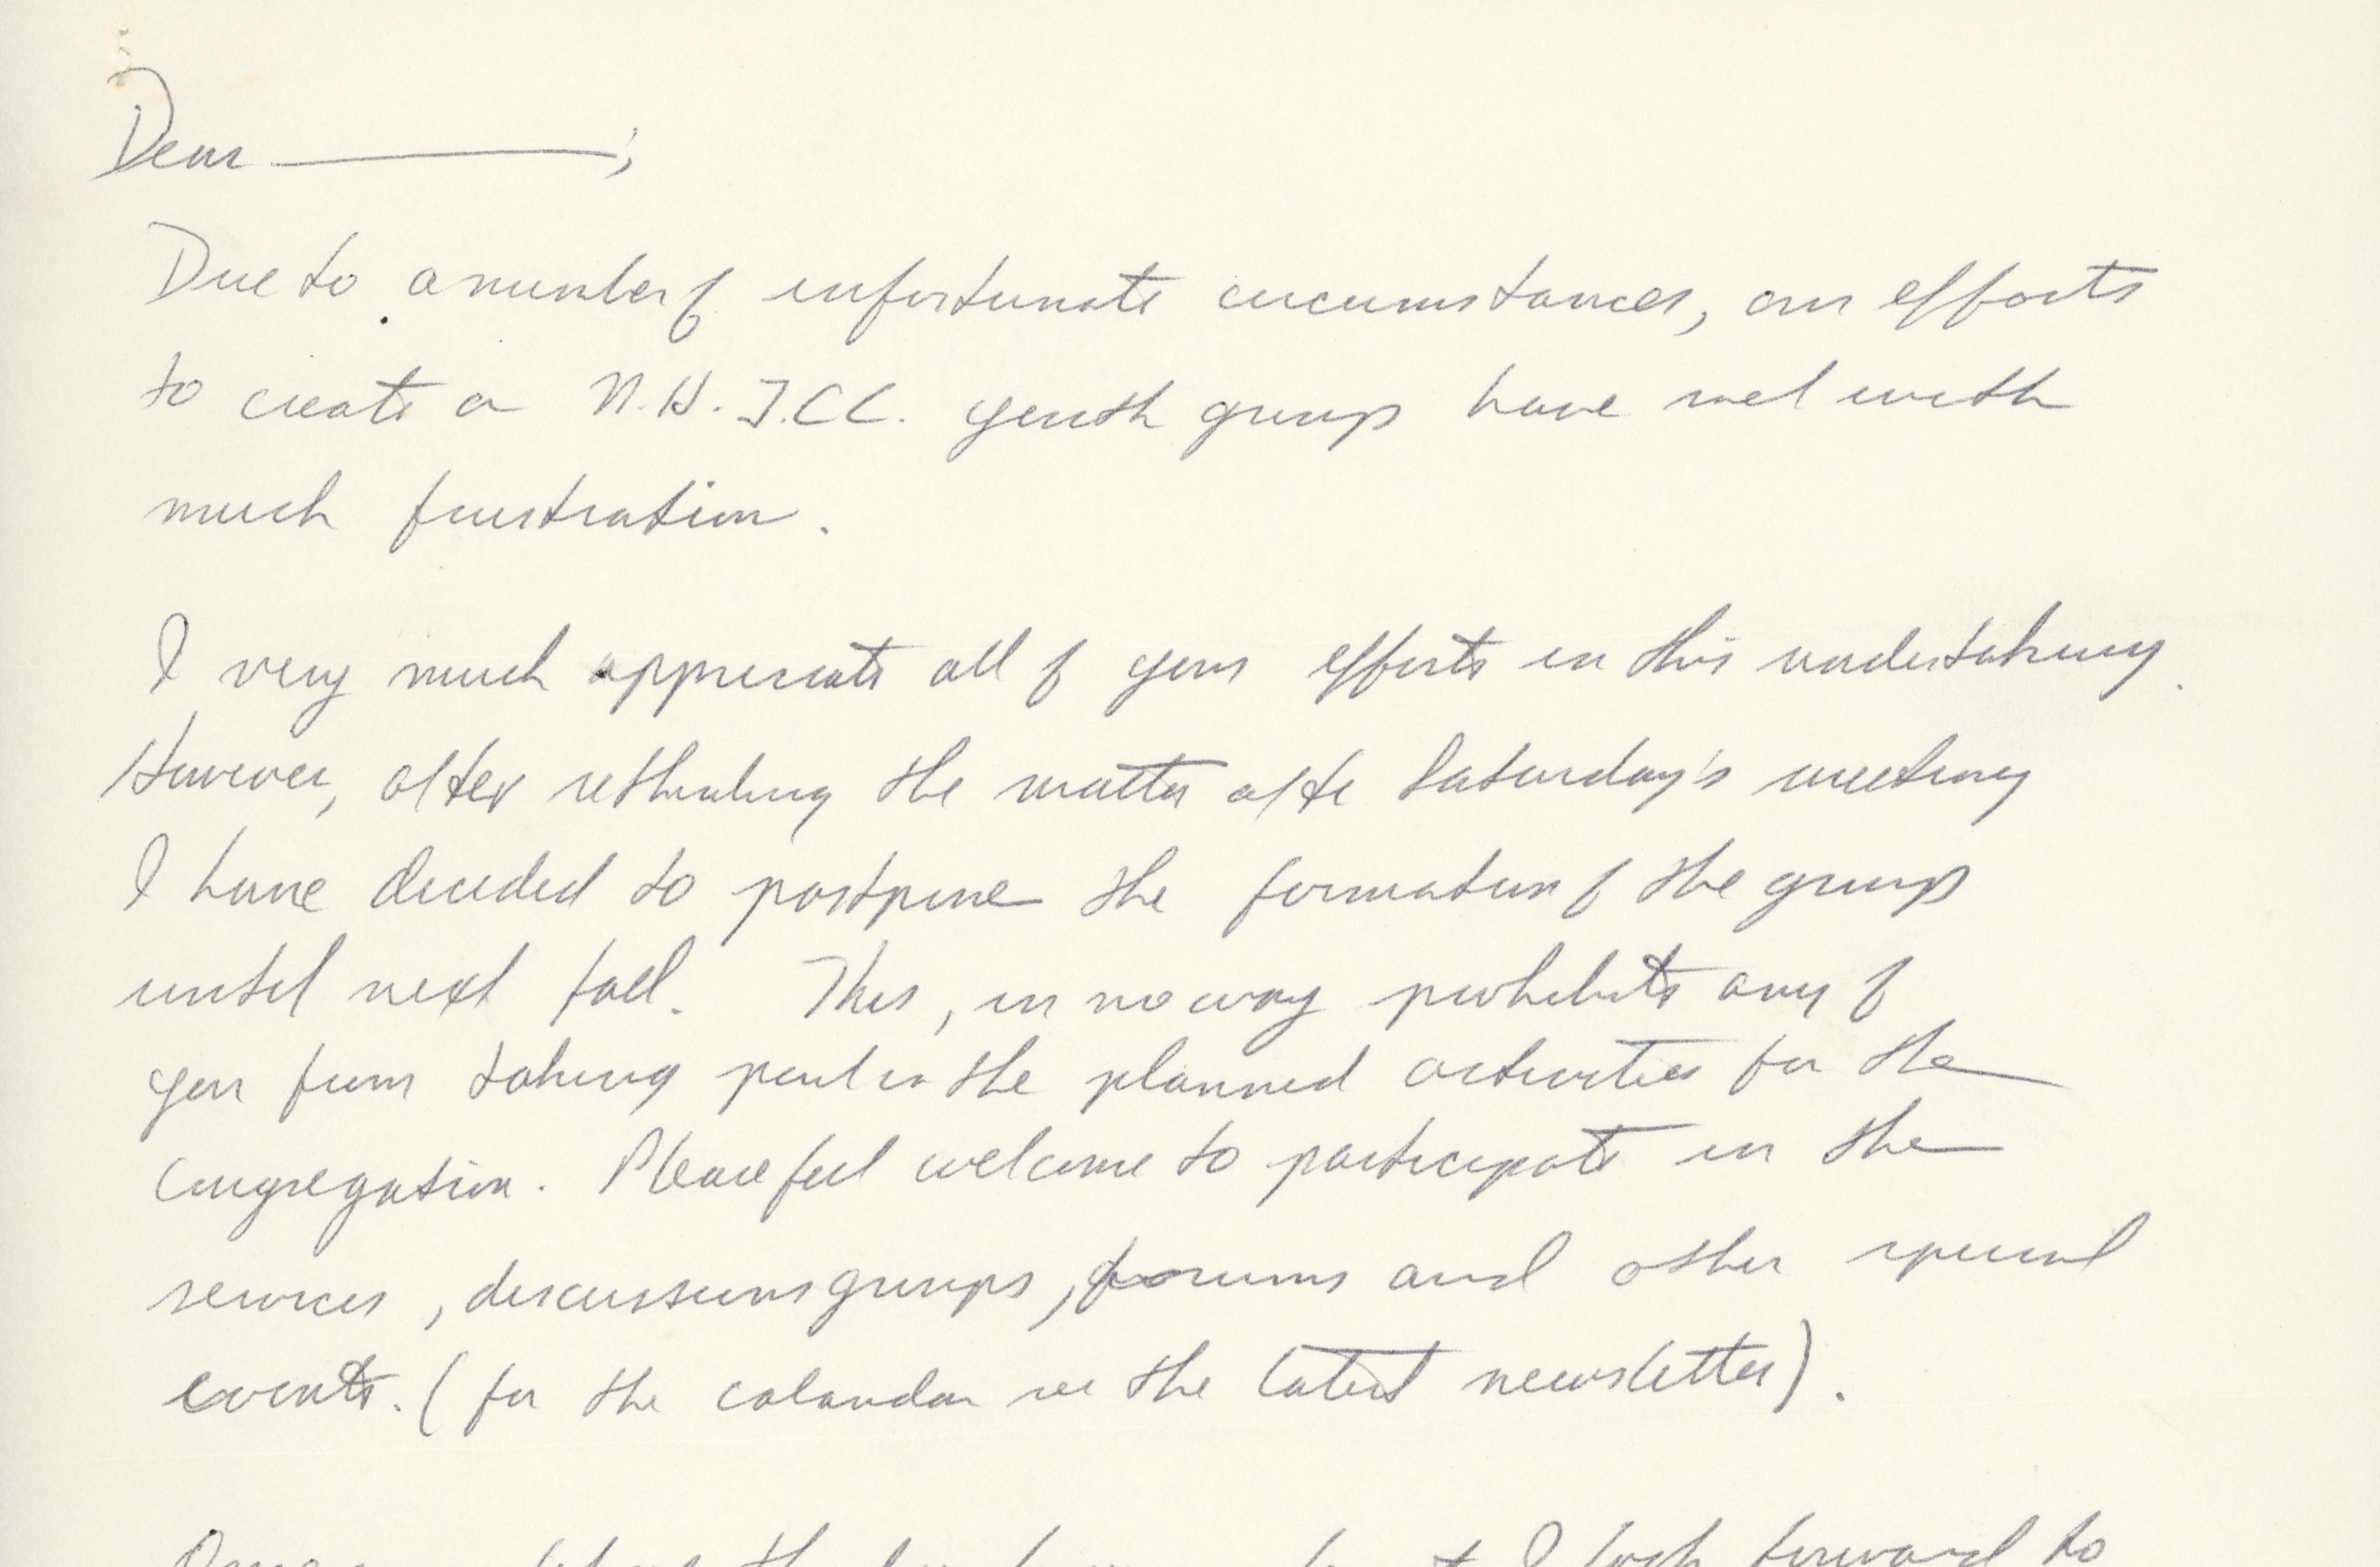 Dear ————;
Due to a number of unfortunate circumstances, our efforts
to create a N.H.J.CC. youth group have met with
much frustration.
I very much appreciate all of your efforts in this undertaking.
However, after rethinking the matter after Saturday's meeting
I have decided to postpone the formation of the group
until next fall. This, in no way prohibits any of
you from taking part in the planned activities for the
Congregation. Please feel welcome to participate in the
services, discussions groups, forums and other special
events. (for the calandar see the latest newsletter).
I look forward to